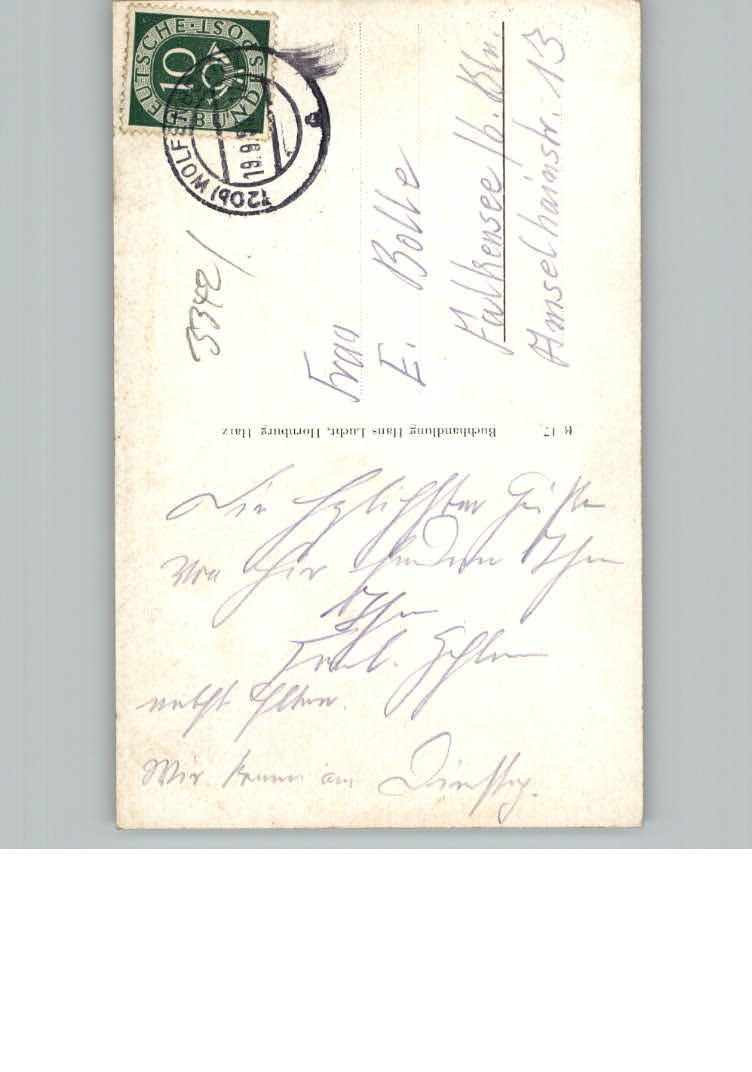 DEUTSCHE BUNDESPOST
10
(20b) WOLFENB
19.9.5
a
3342/
Frau
E. Bolle
Falkensee /b. Bln.
Amselhainstr. 13
R 17 Buchhandlung Hans Lucht, Hornburg Harz
Die herzlichsten Grüße
von hier senden Ihnen
Ihre
nebst Eltern.
Wir kommen am Dienstag.